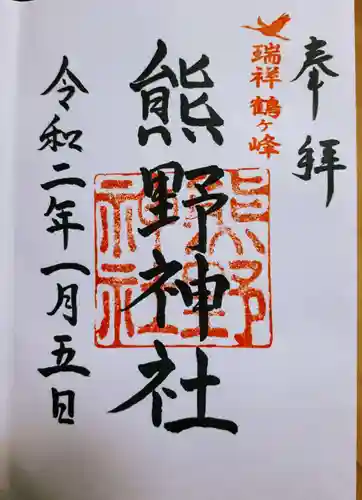 奉拝
瑞祥 鶴ヶ峰
熊野神社
熊野
神社
令和二年一月五日